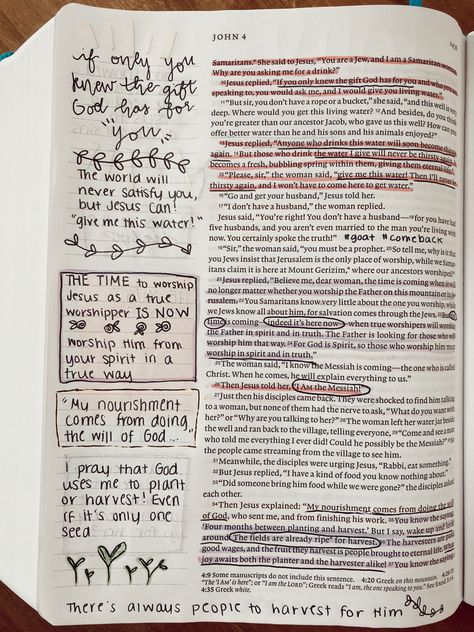 JOHN 4
if only you
knew the gift
God has for
"you"
The world will
never satisfy you,
but Jesus can!
"give me this water!"
THE TIME to worship
Jesus as a true
worshipper IS NOW
worship Him from
your spirit in a
true way
"My nourishment
comes from doing
the will of God..."
I pray that God
uses me to plant
or harvest! Even
if it's only one
seed
Samaritans.* She said to Jesus, "You are a Jew, and I am a Samaritan woman.
Why are you asking me for a drink?"
10Jesus replied, "If you only knew the gift God has for you and who you are
speaking to, you would ask me, and I would give you living water."
11"But sir, you don't have a rope or a bucket," she said, "and this well is very
deep. Where would you get this living water? 12And besides, do you think
you're greater than our ancestor Jacob, who gave us this well? How can you
offer better water than he and his sons and his animals enjoyed?"
13Jesus replied, "Anyone who drinks this water will soon become thirsty
again. 14But those who drink the water I give will never be thirsty again. It
becomes a fresh, bubbling spring within them, giving them eternal life."
15"Please, sir," the woman said, "give me this water! Then I'll never be
thirsty again, and I won't have to come here to get water."
16"Go and get your husband," Jesus told her.
17"I don't have a husband," the woman replied.
Jesus said, "You're right! You don't have a husband— 18for you have had
five husbands, and you aren't even married to the man you're living with
now. You certainly spoke the truth!" #goat #comeback
19"Sir," the woman said, "you must be a prophet. 20So tell me, why is it that
you Jews insist that Jerusalem is the only place of worship, while we Samari-
tans claim it is here at Mount Gerizim,* where our ancestors worshiped?"
21Jesus replied, "Believe me, dear woman, the time is coming when it will
no longer matter whether you worship the Father on this mountain or in Je-
rusalem. 22You Samaritans know very little about the one you worship, while
we Jews know all about him, for salvation comes through the Jews. 23But the
time is coming—indeed it's here now—when true worshipers will worship
the Father in spirit and in truth. The Father is looking for those who will
worship him that way. 24For God is Spirit, so those who worship him must
worship in spirit and in truth."
25The woman said, "I know the Messiah is coming—the one who is called
Christ. When he comes, he will explain everything to us."
26Then Jesus told her, "I AM the Messiah!"*
27Just then his disciples came back. They were shocked to find him talking
to a woman, but none of them had the nerve to ask, "What do you want with
her?" or "Why are you talking to her?" 28The woman left her water jar beside
the well and ran back to the village, telling everyone, 29"Come and see a man
who told me everything I ever did! Could he possibly be the Messiah?" 30So
the people came streaming from the village to see him.
31Meanwhile, the disciples were urging Jesus, "Rabbi, eat something."
32But Jesus replied, "I have a kind of food you know nothing about."
33"Did someone bring him food while we were gone?" the disciples asked
each other.
34Then Jesus explained: "My nourishment comes from doing the will
of God, who sent me, and from finishing his work. 35You know the saying,
'Four months between planting and harvest.' But I say, wake up and look
around. The fields are already ripe* for harvest. 36The harvesters are paid
good wages, and the fruit they harvest is people brought to eternal life. What
joy awaits both the planter and the harvester alike! 37You know the saying,
4:9 Some manuscripts do not include this sentence. 4:20 Greek on this mountain. 4:26
Or "The 'I AM' is here"; or "I am the LORD"; Greek reads "I am, the one speaking to you." See Exod 3:14.
4:35 Greek white.
There's always people to harvest for Him